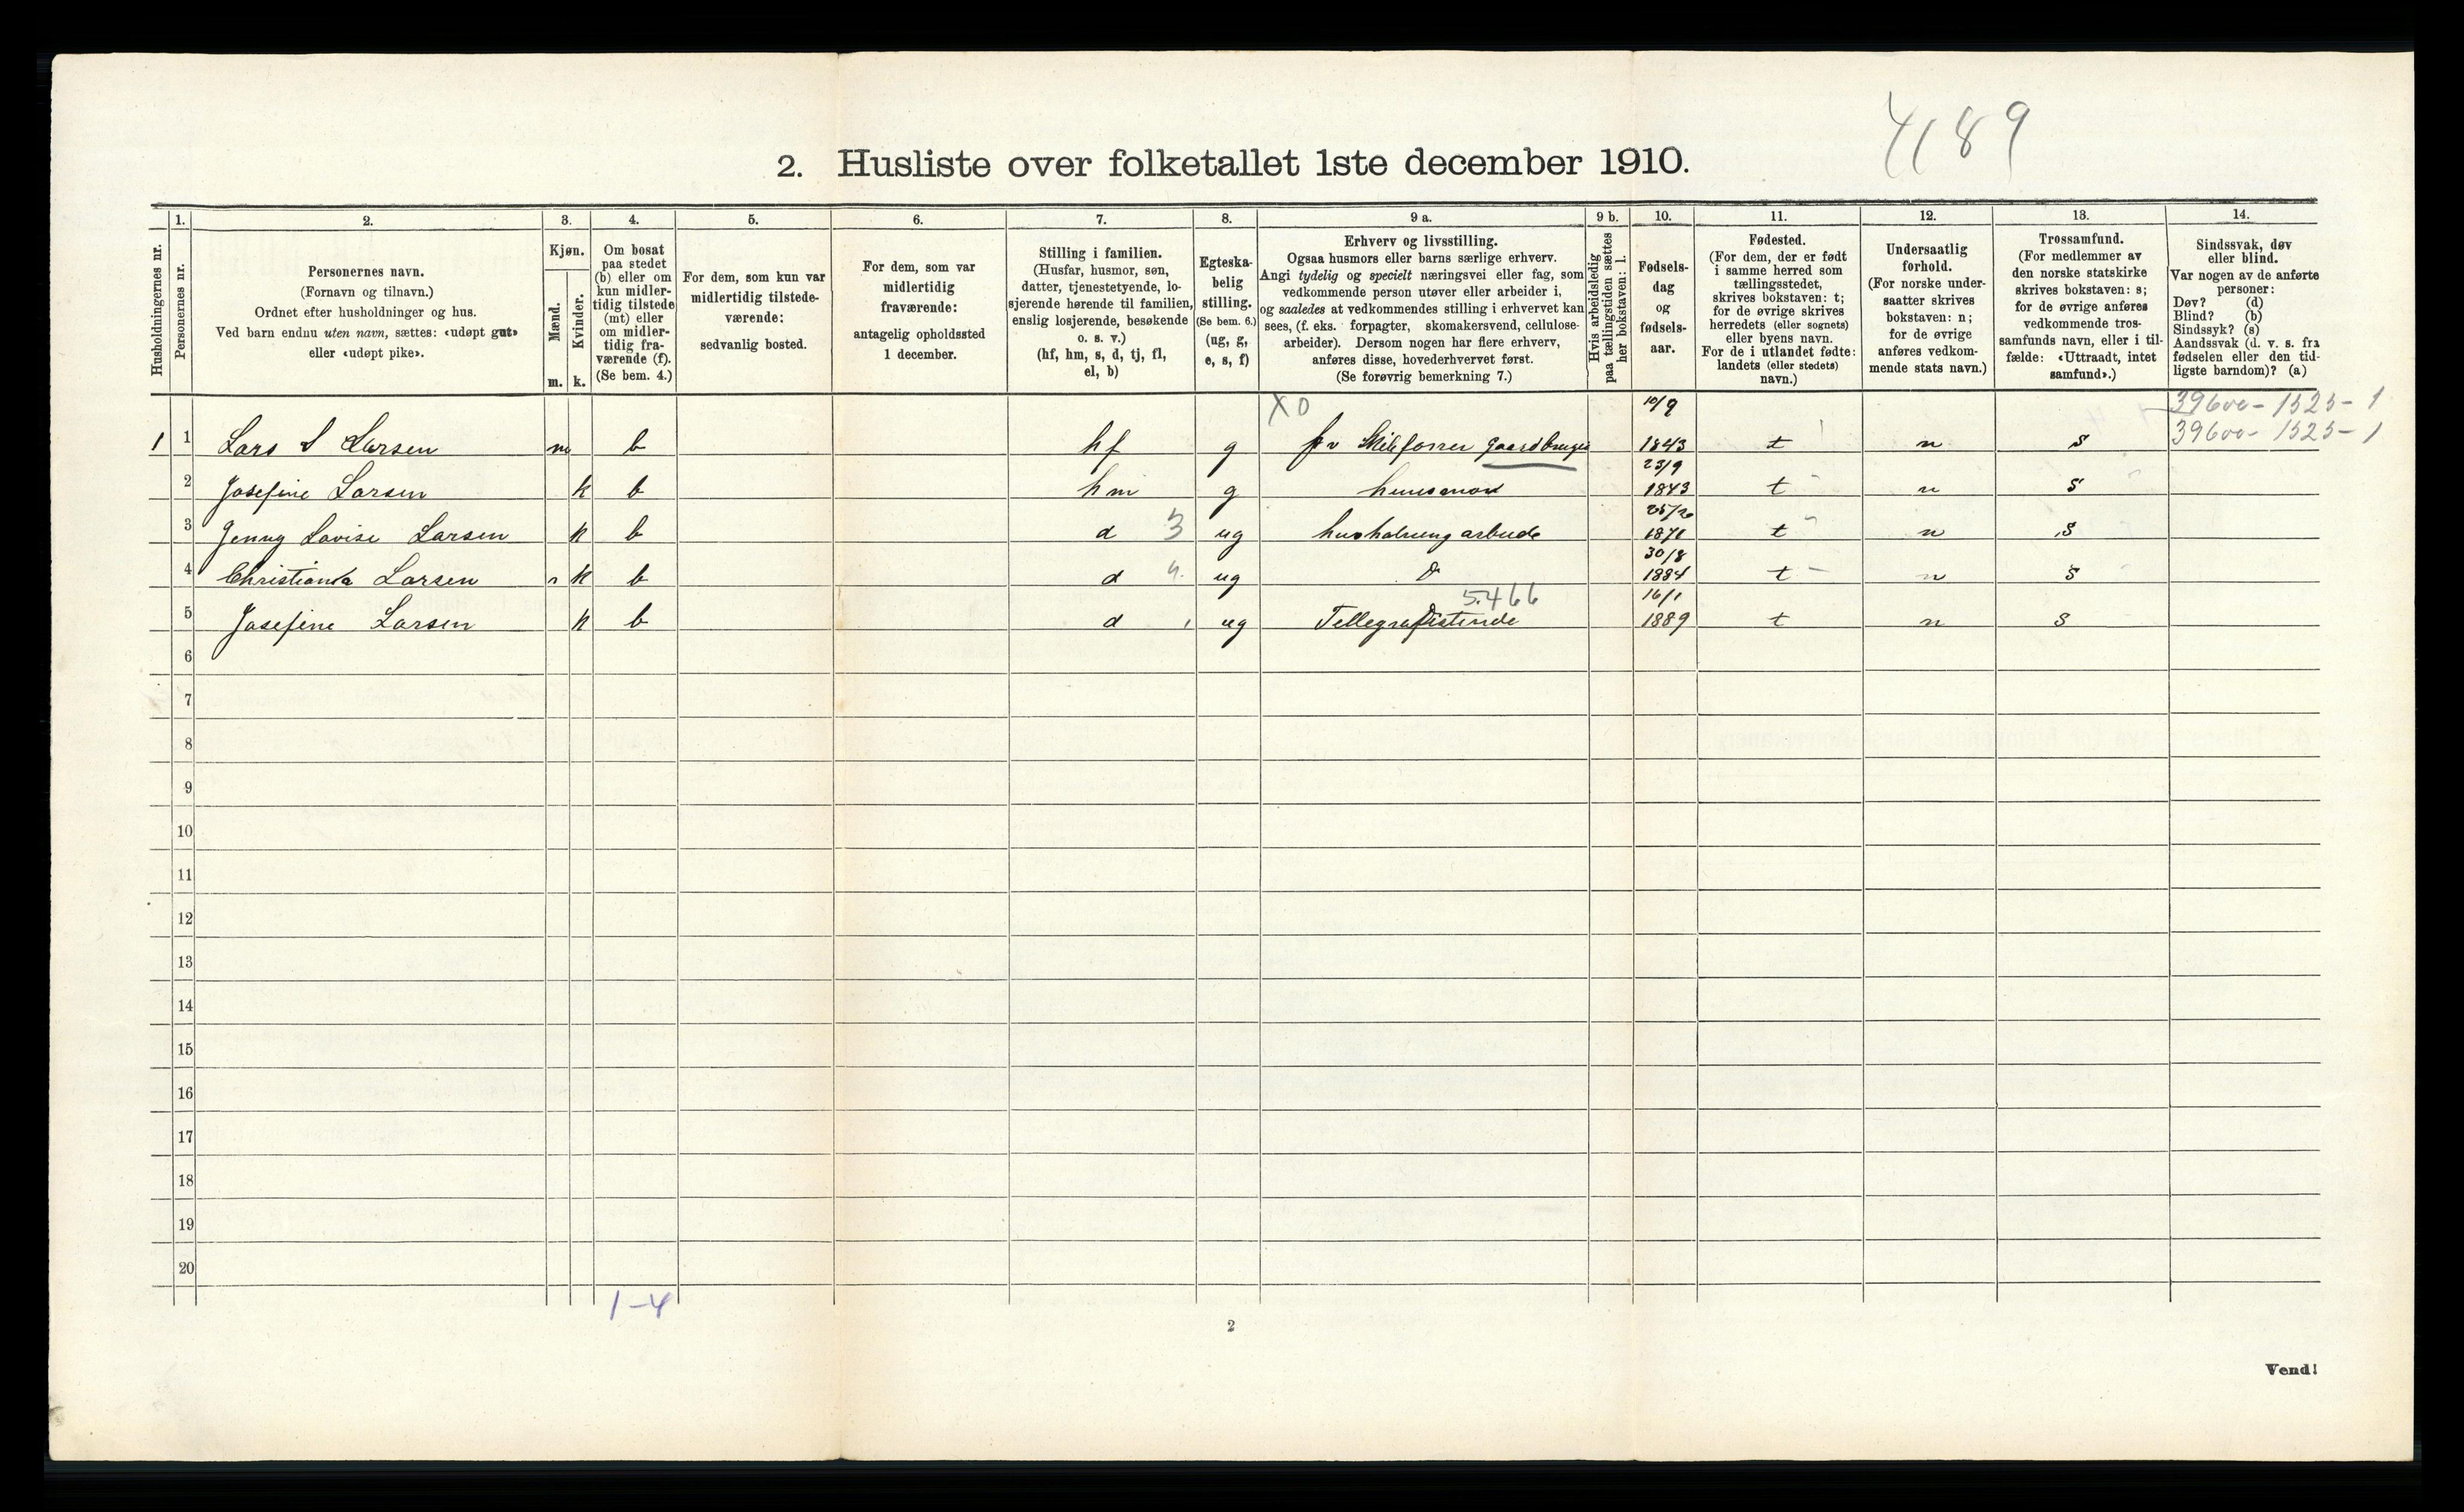 4189
2. Husliste over folketallet 1ste december 1910.
Husholdningernes nr.
1.
Personernes nr.
2.
Personernes navn.
(Fornavn og tilnavn.)
Ordnet efter husholdninger og hus.
Ved barn endnu uten navn, sættes: «udøpt gut»
eller «udøpt pike».
3.
Kjøn.
Mænd.
Kvinder.
m. k.
4.
Om bosat
paa stedet
(b) eller om
kun midler-
tidig tilstede
(mt) eller
om midler-
tidig fra-
værende (f).
(Se bem. 4.)
5.
For dem, som kun var
midlertidig tilstede-
værende:
sedvanlig bosted.
6.
For dem, som var
midlertidig
fraværende:
antagelig opholdssted
1 december.
7.
Stilling i familien.
(Husfar, husmor, søn,
datter, tjenestetyende, lo-
sjerende hørende til familien,
enslig losjerende, besøkende
o. s. v.)
(hf, hm, s, d, tj, fl,
el, b)
8.
Egteska-
belig
stilling.
(Se bem. 6.)
(ug, g,
e, s, f)
9 a.
Erhverv og livsstilling.
Ogsaa husmors eller barns særlige erhverv.
Angi tydelig og specielt næringsvei eller fag, som
vedkommende person utøver eller arbeider i,
og saaledes at vedkommendes stilling i erhvervet kan
sees, (f. eks. forpagter, skomakersvend, cellulose-
arbeider). Dersom nogen har flere erhverv,
anføres disse, hovederhvervet først.
(Se forøvrig bemerkning 7.)
9 b.
Hvis arbeidsledig
paa tællingstiden sættes
her bokstaven: l.
10.
Fødsels-
dag
og
fødsels-
aar.
11.
Fødested.
(For dem, der er født
i samme herred som
tællingsstedet,
skrives bokstaven: t;
for de øvrige skrives
herredets (eller sognets)
eller byens navn.
For de i utlandet fødte:
landets (eller stedets)
navn.)
12.
Undersaatlig
forhold.
(For norske under-
saatter skrives
bokstaven: n;
for de øvrige
anføres vedkom-
mende stats navn.)
13.
Trossamfund.
(For medlemmer av
den norske statskirke
skrives bokstaven: s;
for de øvrige anføres
vedkommende tros-
samfunds navn, eller i til-
fælde: «Uttraadt, intet
samfund».)
14.
Sindssvak, døv
eller blind.
Var nogen av de anførte
personer:
Døv? (d)
Blind? (b)
Sindssyk? (s)
Aandssvak (d. v. s. fra
fødselen eller den tid-
ligste barndom)? (a)
X0 10/9 39600 - 1525 - 1
1 1 Lars L Larsen m b hf g fv Skibsfører Gaardbruger 1843 t n s 39600 - 1525 - 1
23/9
2 Josefine Larsen k b hm g huusmor 1843 t n s
3 Jenny Lovise Larsen k b d 3 ug husholdning arbeide 1871 t n s
30/8
4 Christianka Larsen k b d 4. ug D 1884 t n s
5.466 16/1
5 Josefine Larsen k b d ug Tellegrafistinde 1889 t n s
6
7
8
9
10
11
12
13
14
15
16
17
18
19
20
1-4
2
Vend!